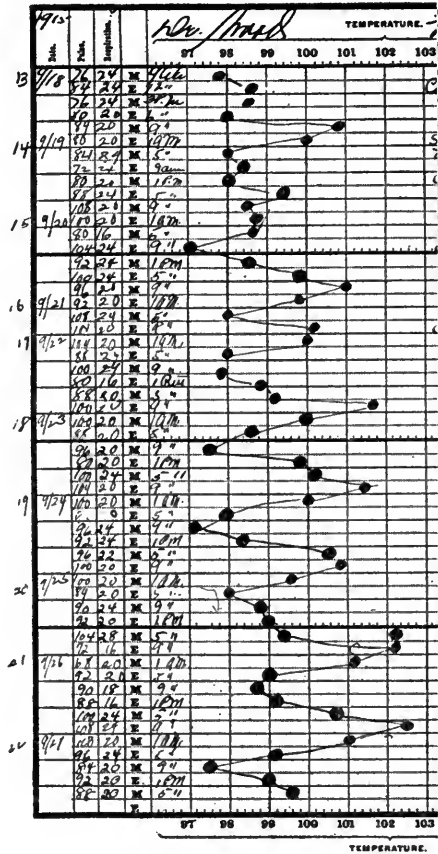 1915
Date. Pulse. Respiration. TEMPERATURE.
97 98 99 100 101 102 103
13 9/18 76 24 M
84 24 E 12"
76 24 M
80 20 E
84 20 M 9"
14 9/19 80 20 E 1 AM
84 24 M 5"
72 24 E 9am
80 20 M 1 P.m
88 24 E 5"
108 20 M 9"
15 9/20 100 20 E 1 am
80 16 M 5"
104 24 E 9"
92 24 M 1 PM
100 24 E 5"
96 20 M 9"
16 9/21 92 20 E 1 AM
108 24 M 5"
104 20 E 9"
17 9/22 104 20 M 1 AM
88 24 E 5"
100 24 M 9"
80 16 E
88 20 M 5"
100 20 E 9"
18 9/23 100 20 M 1 AM
88 20 E 5"
96 20 M 9"
80 20 E 1 PM
100 24 M 5"
104 20 E 9"
19 9/24 100 20 M 1 AM
E 5"
96 24 M 9"
92 24 E 1 PM
96 22 M 5"
100 20 E 9"
9/25 100 20 M 1 AM
84 20 E 5"
90 24 M 9"
92 20 E 1 PM
104 28 M 5"
72 16 E 9"
21 9/26 68 20 M 1 AM
92 20 E 5"
90 18 M 9"
88 16 E 1 PM
100 24 M 5"
108 24 E 9"
9/27 100 20 M 1 AM
96 24 E 5"
84 20 M 9"
92 20 E 1 PM
88 20 M 5"
E
97 98 99 100 101 102 103
TEMPERATURE.